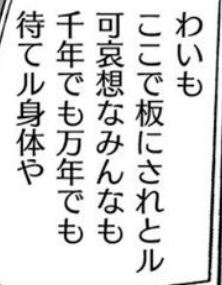 わいも
ここで板にされとル
可哀想なみんなも
千年でも万年でも
待てル身体や